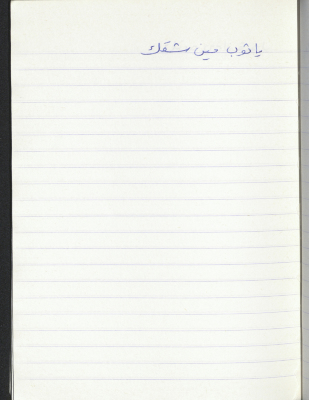 يا ثوب مين شقك